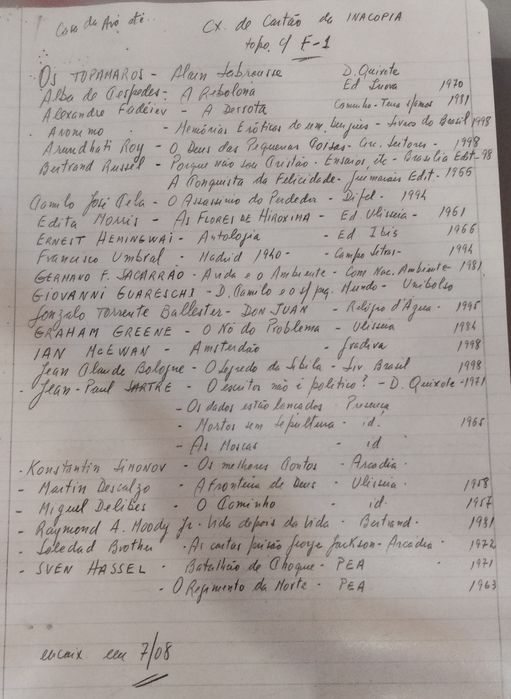 Casa da Avó até..
Cx. de Cartão da INACOPIA
topo c/ F-1
Os TUPAMAROS - Alain Labrousse D. Quixote
Alba de Cespedes - A Rebolona Ed 1970
Alexandre Fadéiev - A Derrota Caminho - 1981
Anonimo - Memórias Eróticas de um burguês - Livros do Brasil 1998
Arundhati Roy - O Deus das Pequenas Coisas - Circ. Leitores - 1998
Bertrand Russel - Porque não sou Cristão - Ensaios, etc - Brasilia Edit - 98
A Conquista da Felicidade - Guimarães Edit - 1966
Camilo José Cela - O Assassinio do Perdedor - Difel - 1994
Edita Morris - As FLORES DE HIROXIMA - Ed. Ulisseia - 1961
ERNEST HEMINGWAI - Antologia - Ed Ibis - 1966
Francisco Umbral - Madrid 1940 - Campo Letras - 1994
GERMANO F. SACARRÃO - A vida e o Ambiente - Com Nac. Ambiente - 1981
GIOVANNI GUARESCHI - D. Camilo e o s/ peq. Mundo - Unibolso
Gonzalo TORRENTE Ballester - DON JUAN - Relógio d'Água - 1995
GRAHAM GREENE - O Nó do Problema - Ulisseia 1984
IAN McEWAN - Amsterdão - Gradiva 1998
Jean Claude Bologne - O Segredo da Sibila - Liv. Brasil 1998
- Jean-Paul SARTRE - O escritor não é politico? - D. Quixote - 1971
- Os dados estão lançados - Presença
- Mortos sem sepultura - id. 1965
- As Moscas - id
- Konstantin Simonov - Os melhores Contos - Arcadia -
- Martin Descalzo - A Fronteira de Deus - Ulisseia - 1958
- Miguel Delibes - O Caminho - id. - 1957
- Raymond A. Moody Jr - Vida depois da Vida - Bertrand - 1981
- Soledad Brother - As cartas prisão George Jackson - Arcadia - 1972
- SVEN HASSEL - Batalhão de Choque - PEA - 1971
- O Regimento da Morte - PEA 1963
encaix em 7/08